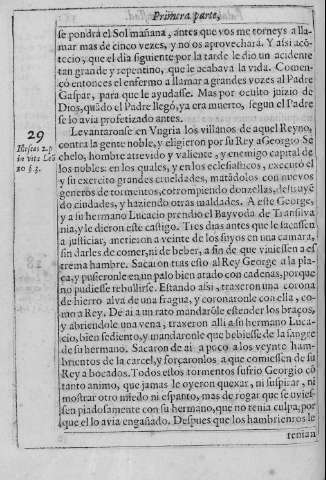 Primera parte,
se pondrá el Sol mañana, antes que vos me torneys a llamar
mar mas de cinco vezes, y no os aprovechará. Y assi acõ
tecio; que el dia siguiente por la tarde le dio un acidente
tan grande y repentino, que le acabava la vida. Comen
çò entonces el enfermo a llamar a grandes vozes al Padre
Gaspar, para que le ayudasse. Mas por oculto juizio de
Dios, quãdo el Padre llegó, ya era muerto, segun el Padre
se lo avia profetizado antes.
29
Levantaronse en Vngria los villanos de aquel Reyno,
Illescas 2. p.
contra la gente noble, y eligieron por su Rey a Georgio Se
in vita Leõ
chelo, hombre atrevido y valiente, y enemigo capital de
10 §. 3.
los nobles: en los quales, y en los eclesiasticos, executó el
y su exercito grandes crueldades, matãdolos con nuevos
generos de tormentos, corrompiendo donzellas, destruyẽ
do ciudades, y haziendo otras maldades. A este George,
y a su hermano Lucacio prendio el Bayvoda de Transilva
nia, y le dieron este castigo. Tres dias antes que le sacassen
a justiciar, metieron a veinte de los suyos en una camara,
sin darles de comer, ni de beber, a fin de que viniessen a es
trema hambre. Sacaron tras esto al Rey George a la pla-
ça, y pusieronle en un palo bien atado con cadenas, porque
no pudiesse rebullirse. Estando assi, traxeron una corona
de hierro alva de una fragua, y coronaronle con ella, co-
mo a Rey. De ai a un rato mandarõle estender los braços,
y abriendole una vena, traxeron alli a su hermano Luca-
cio, bien sediento, y mandaronle que bebiesse de la sangre
de su hermano. Sacaron de ai a poco a los veynte ham-
brientos de la carcel, y forçaronlos a que comiessen de su
Rey a bocados. Todos estos tormentos sufrio Georgio cõ
tanto animo, que jamas le oyeron quexar, ni suspirar, ni
mostrar otro miedo ni espanto, mas de rogar que se uvies-
sen piadosamente con su hermano, que no tenia culpa, por
que el lo avia engañado. Despues que los hambrientos le
tenian